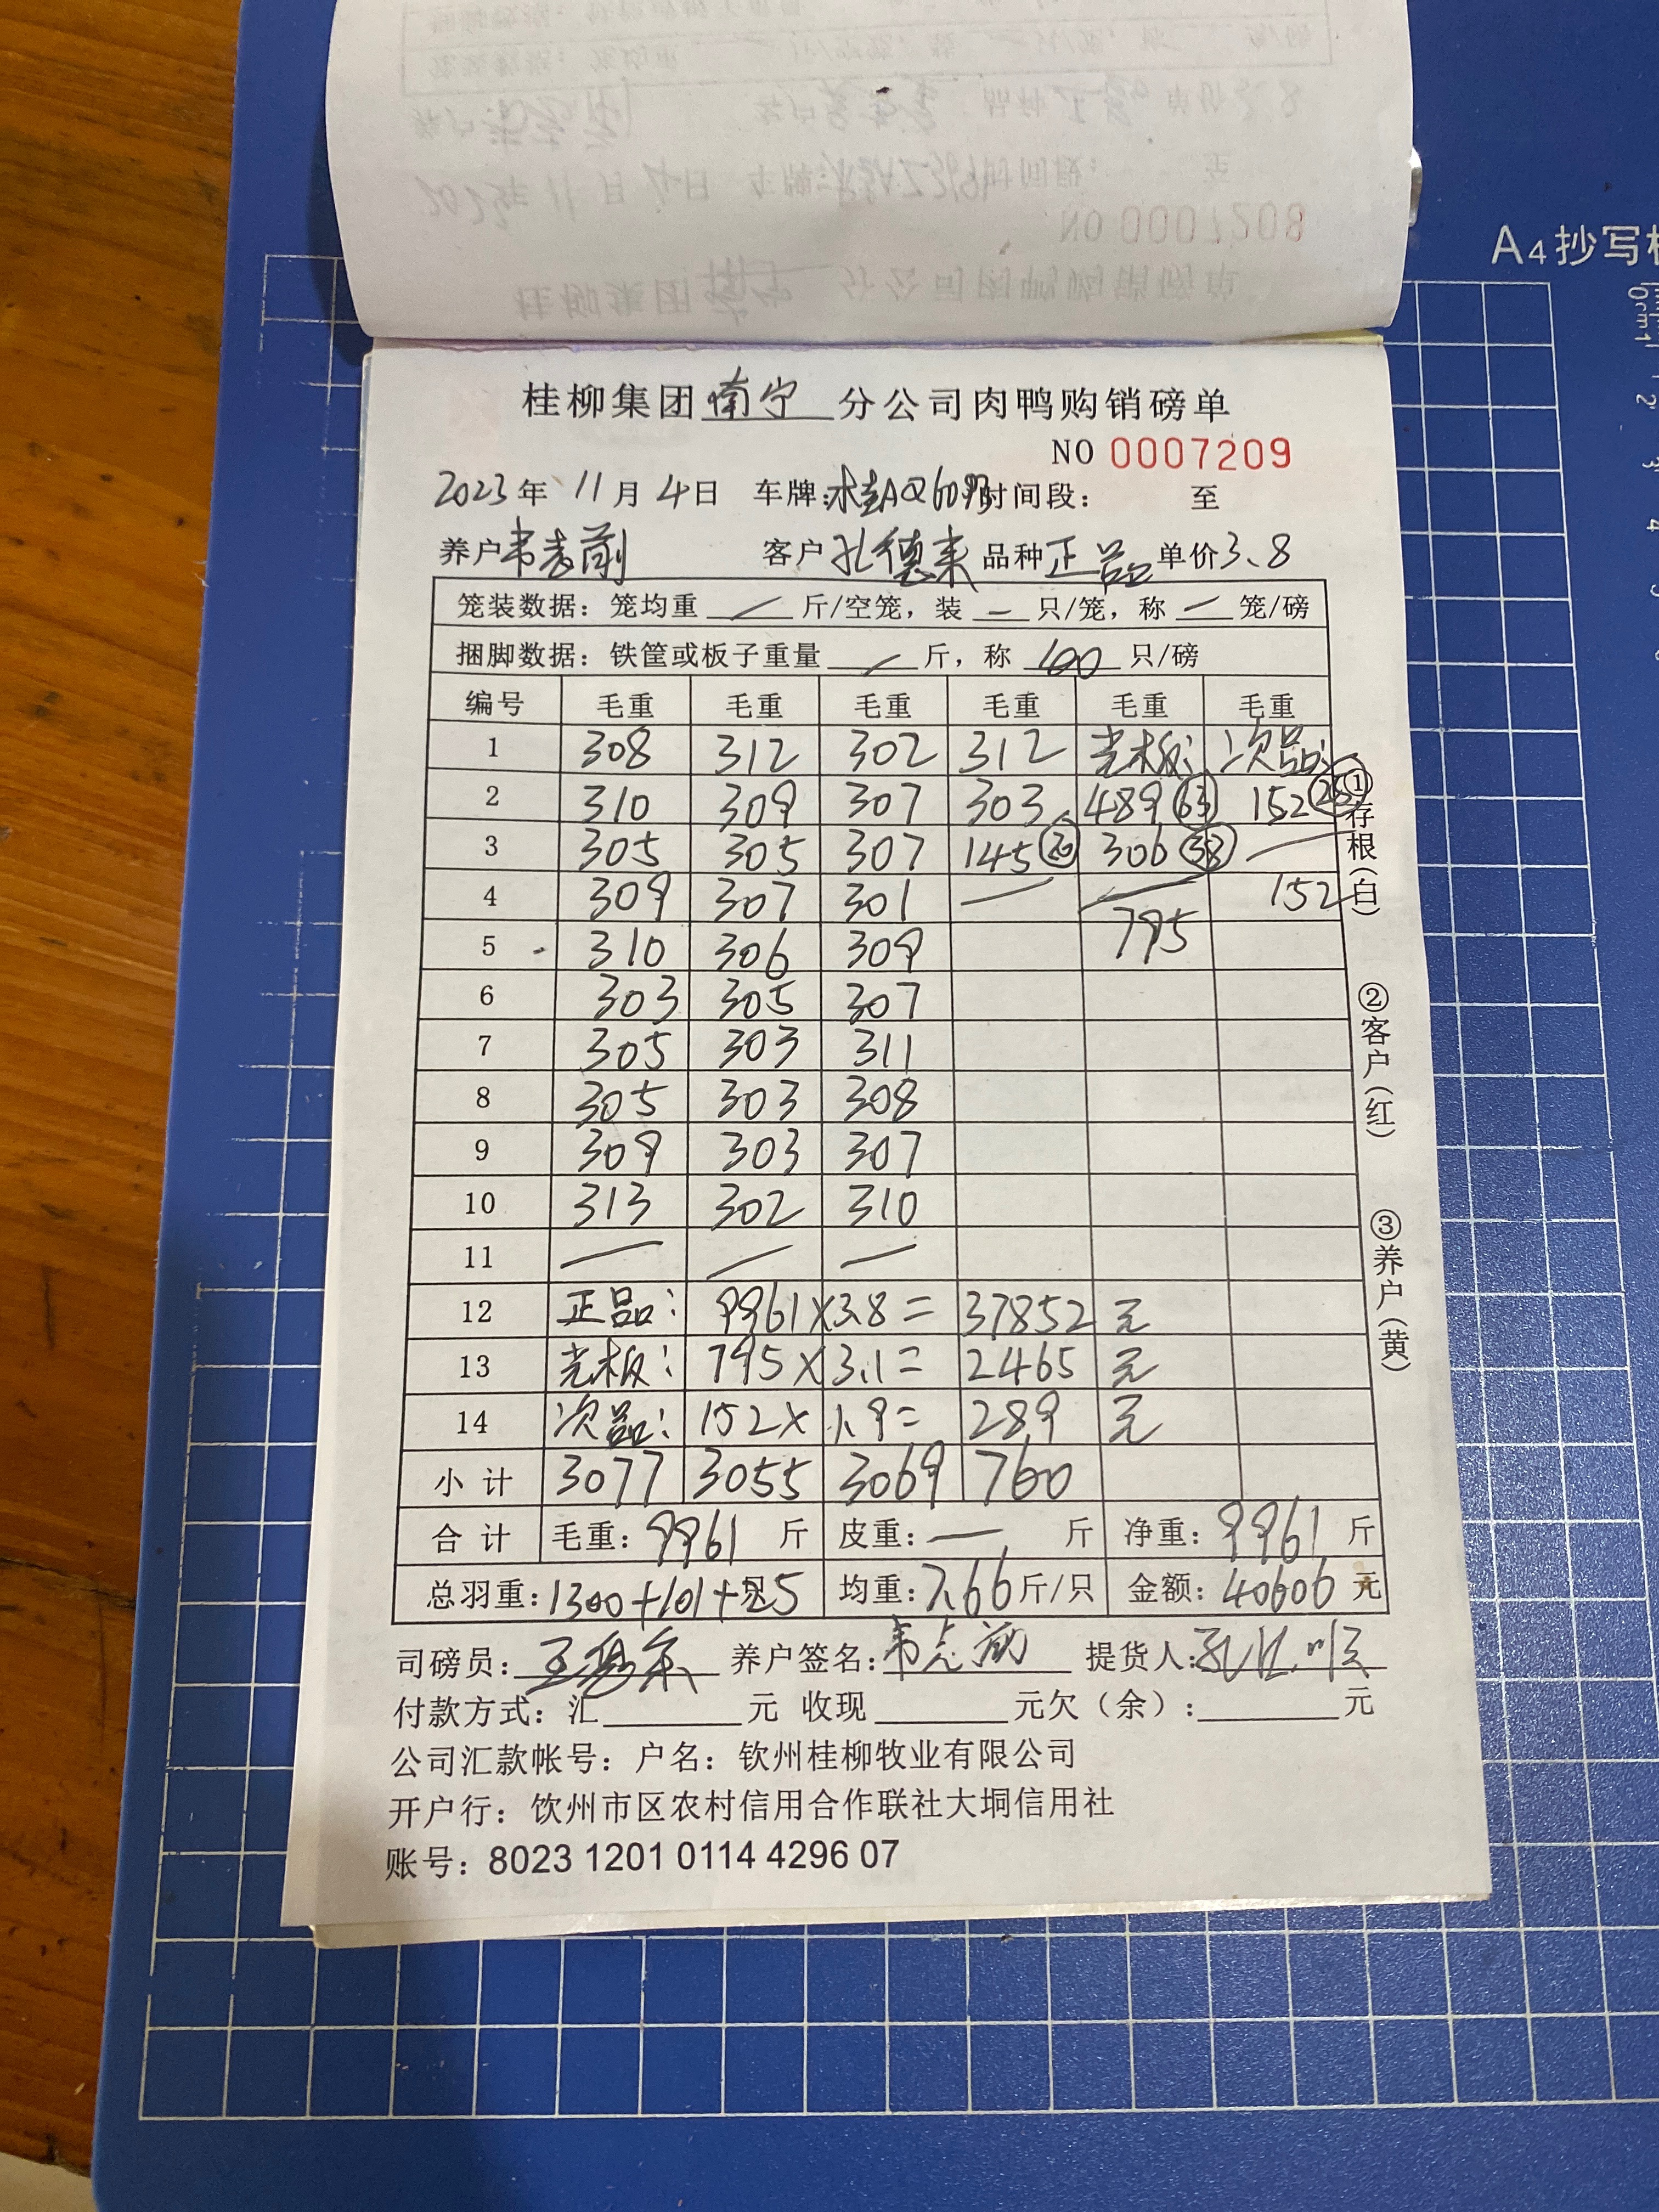 A4抄写
桂柳集团南宁分公司肉鸭购销磅单
NO 0007209
2023年 11月 4日 车牌:桂AQ6093时间段: 至
养户韦志前 客户孔德来 品种正品 单价3.8
笼装数据: 笼均重 — 斤/空笼, 装 — 只/笼, 称 — 笼/磅
捆脚数据: 铁筐或板子重量 — 斤, 称 100 只/磅
编号 毛重 毛重 毛重 毛重 毛重 毛重
1 308 312 302 312 光板: 次品:
2 310 309 307 303 489 63 152 25
3 305 305 307 145 20 306 38 —
4 309 307 301 — — 152
5 310 306 309 795
6 303 305 307
7 305 303 311
8 305 303 308
9 309 303 307
10 313 302 310
11 — — —
12 正品: 9961×3.8= 37852 元
13 光板: 795×3.1= 2465 元
14 次品: 152×1.9= 289 元
小计 3077 3055 3069 760
合计 毛重: 9961 斤 皮重: — 斤 净重: 9961 斤
总羽重: 1300+101+25 只 均重: 7.66 斤/只 金额: 40606 元
司磅员: 养户签名: 韦志前 提货人:
付款方式: 汇 元 收现 元欠(余): 元
公司汇款帐号: 户名: 钦州桂柳牧业有限公司
开户行: 钦州市区农村信用合作联社大垌信用社
账号: 8023 1201 0114 4296 07
①存根(白)
②客户(红)
③养户(黄)